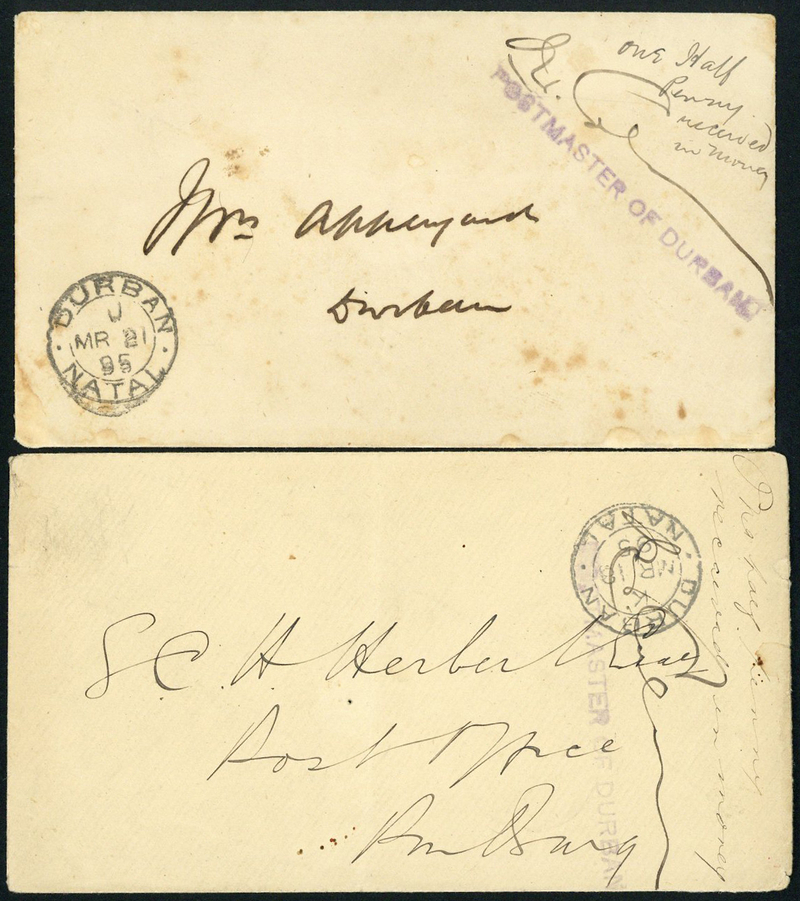 one Half
Penny
received
in money
POSTMASTER OF DURBAN
Mrs Appleyard
Durban
DURBAN
U
MR 21
95
NATAL
One half Penny
received in money
DURBAN
NATAL
MASTER OF DURBAN
G C H Herbert Esq
Post Office
PmBurg